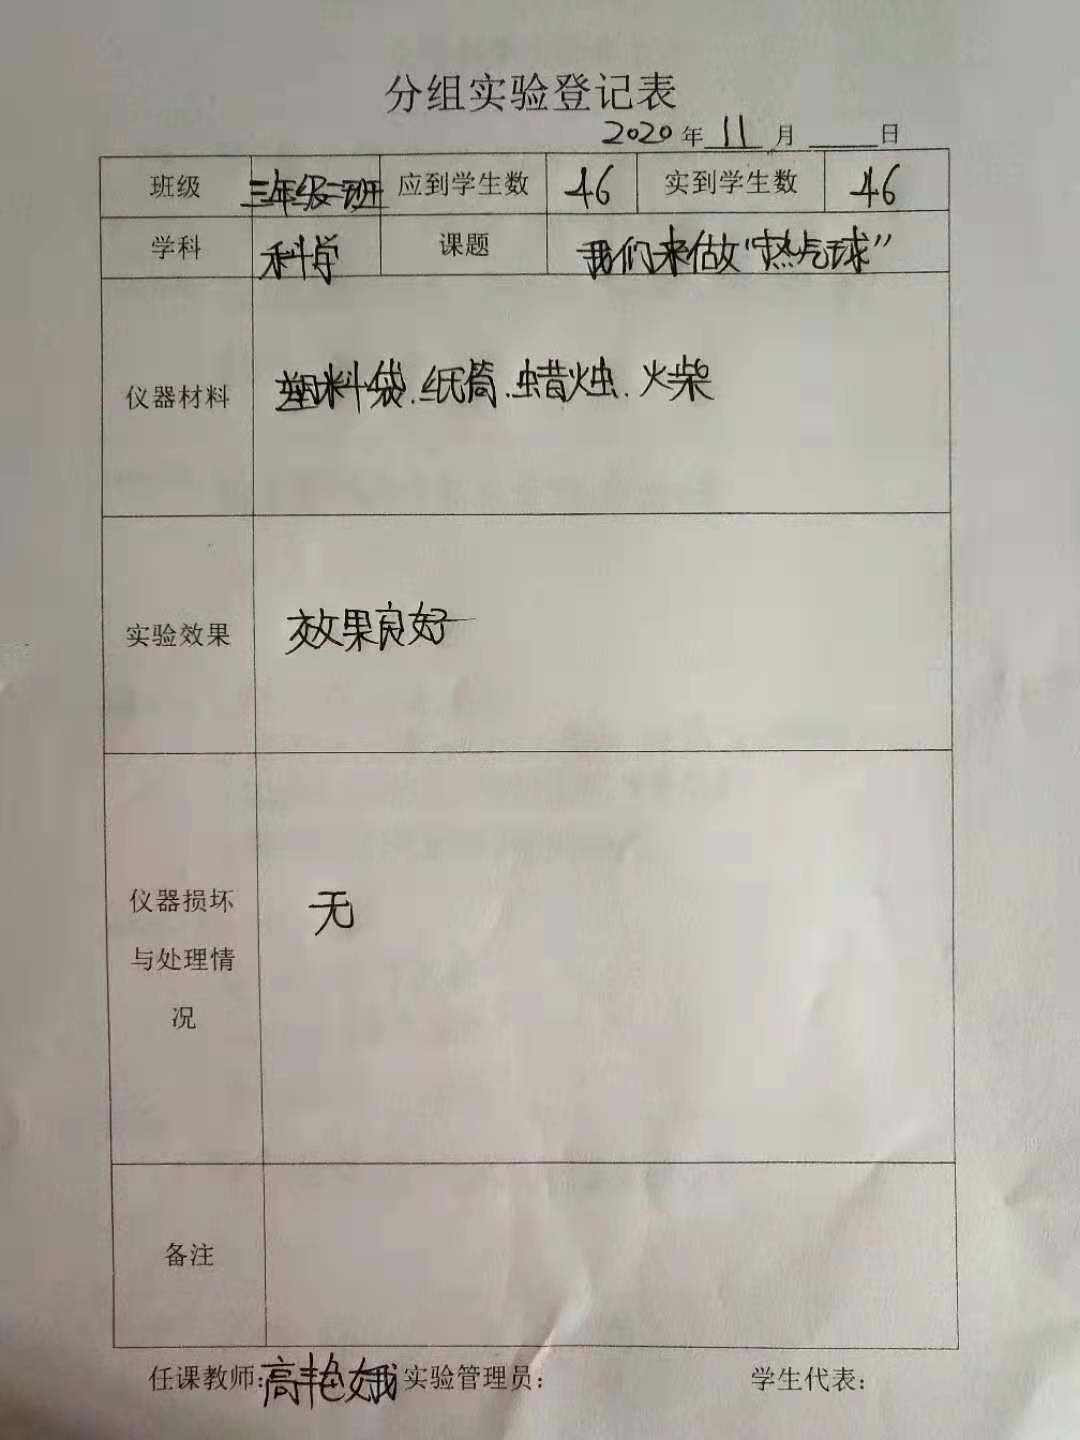 分组实验登记表
2020年 11 月 日
班级 三年级二班 应到学生数 46 实到学生数 46
学科 科学 课题 我们来做“热气球”
仪器材料 塑料袋.纸筒.蜡烛.火柴
实验效果 效果良好
仪器损坏
与处理情
况
无
备注
任课教师:高艳娥 实验管理员: 学生代表: